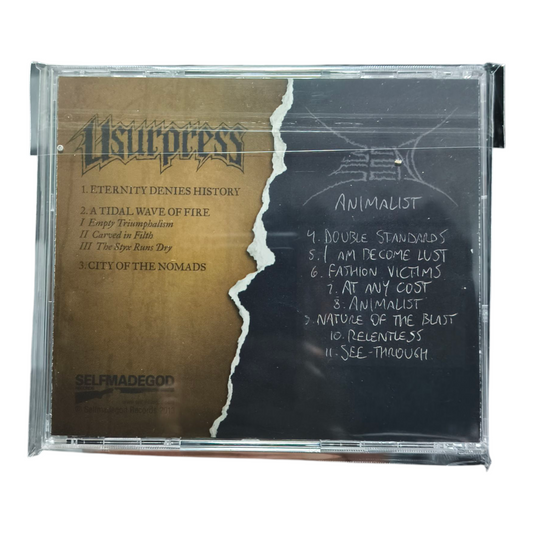 Usurpress
1. ETERNITY DENIES HISTORY
2. A TIDAL WAVE OF FIRE
I Empty Triumphalism
II Carved in Filth
III The Styx Runs Dry
3. CITY OF THE NOMADS
SELFMADEGOD
ANIMALIST
4. DOUBLE STANDARDS
5. I AM BECOME LUST
6. FASHION VICTIMS
7. AT ANY COST
8. ANIMALIST
9. NATURE OF THE BLAST
10. RELENTLESS
11. SEE-THROUGH